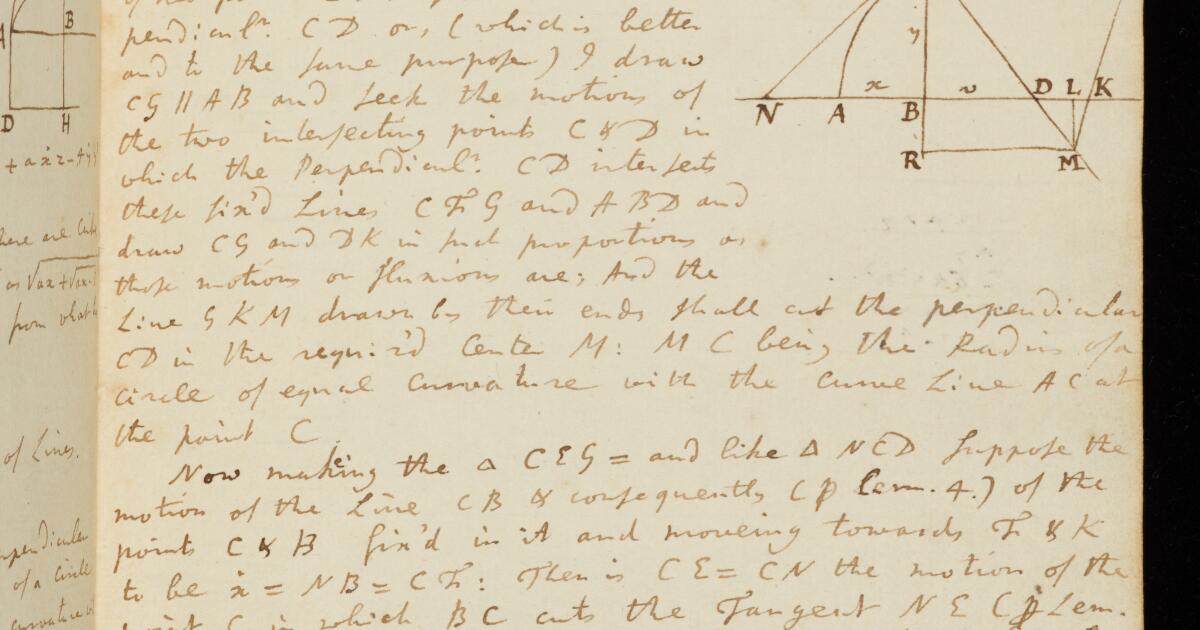 B
A
D H
pendicul.r CD or, (which is better
and to the same purpose) I draw
CG || AB and seek the motions of
the two intersecting points C & D in
which the Perpendicul.r CD intersects
these fix'd Lines CFG and ABD and
draw CG and DK in such proportions as
those motions or fluxions are; And the
Line GKM drawn by their ends shall cut the perpendicular
CD in the requir'd Center M: MC being the Radius of a
circle of equal Curvature with the Curve Line AC at
the point C
Now making the △ CEG = and like △ NCD Suppose the
motion of the Line CB & consequently (p Lem. 4.) of the
points C & B fix'd in it and moveing towards F & K
to be ẋ = NB = CF: Then is CE = CN the motion of the
point C in which BC cuts the Tangent NE (p Lem.
y
x v D L K
N A B
R M
here are
from what
of Lines.
perpendicular
of a circle
curvature